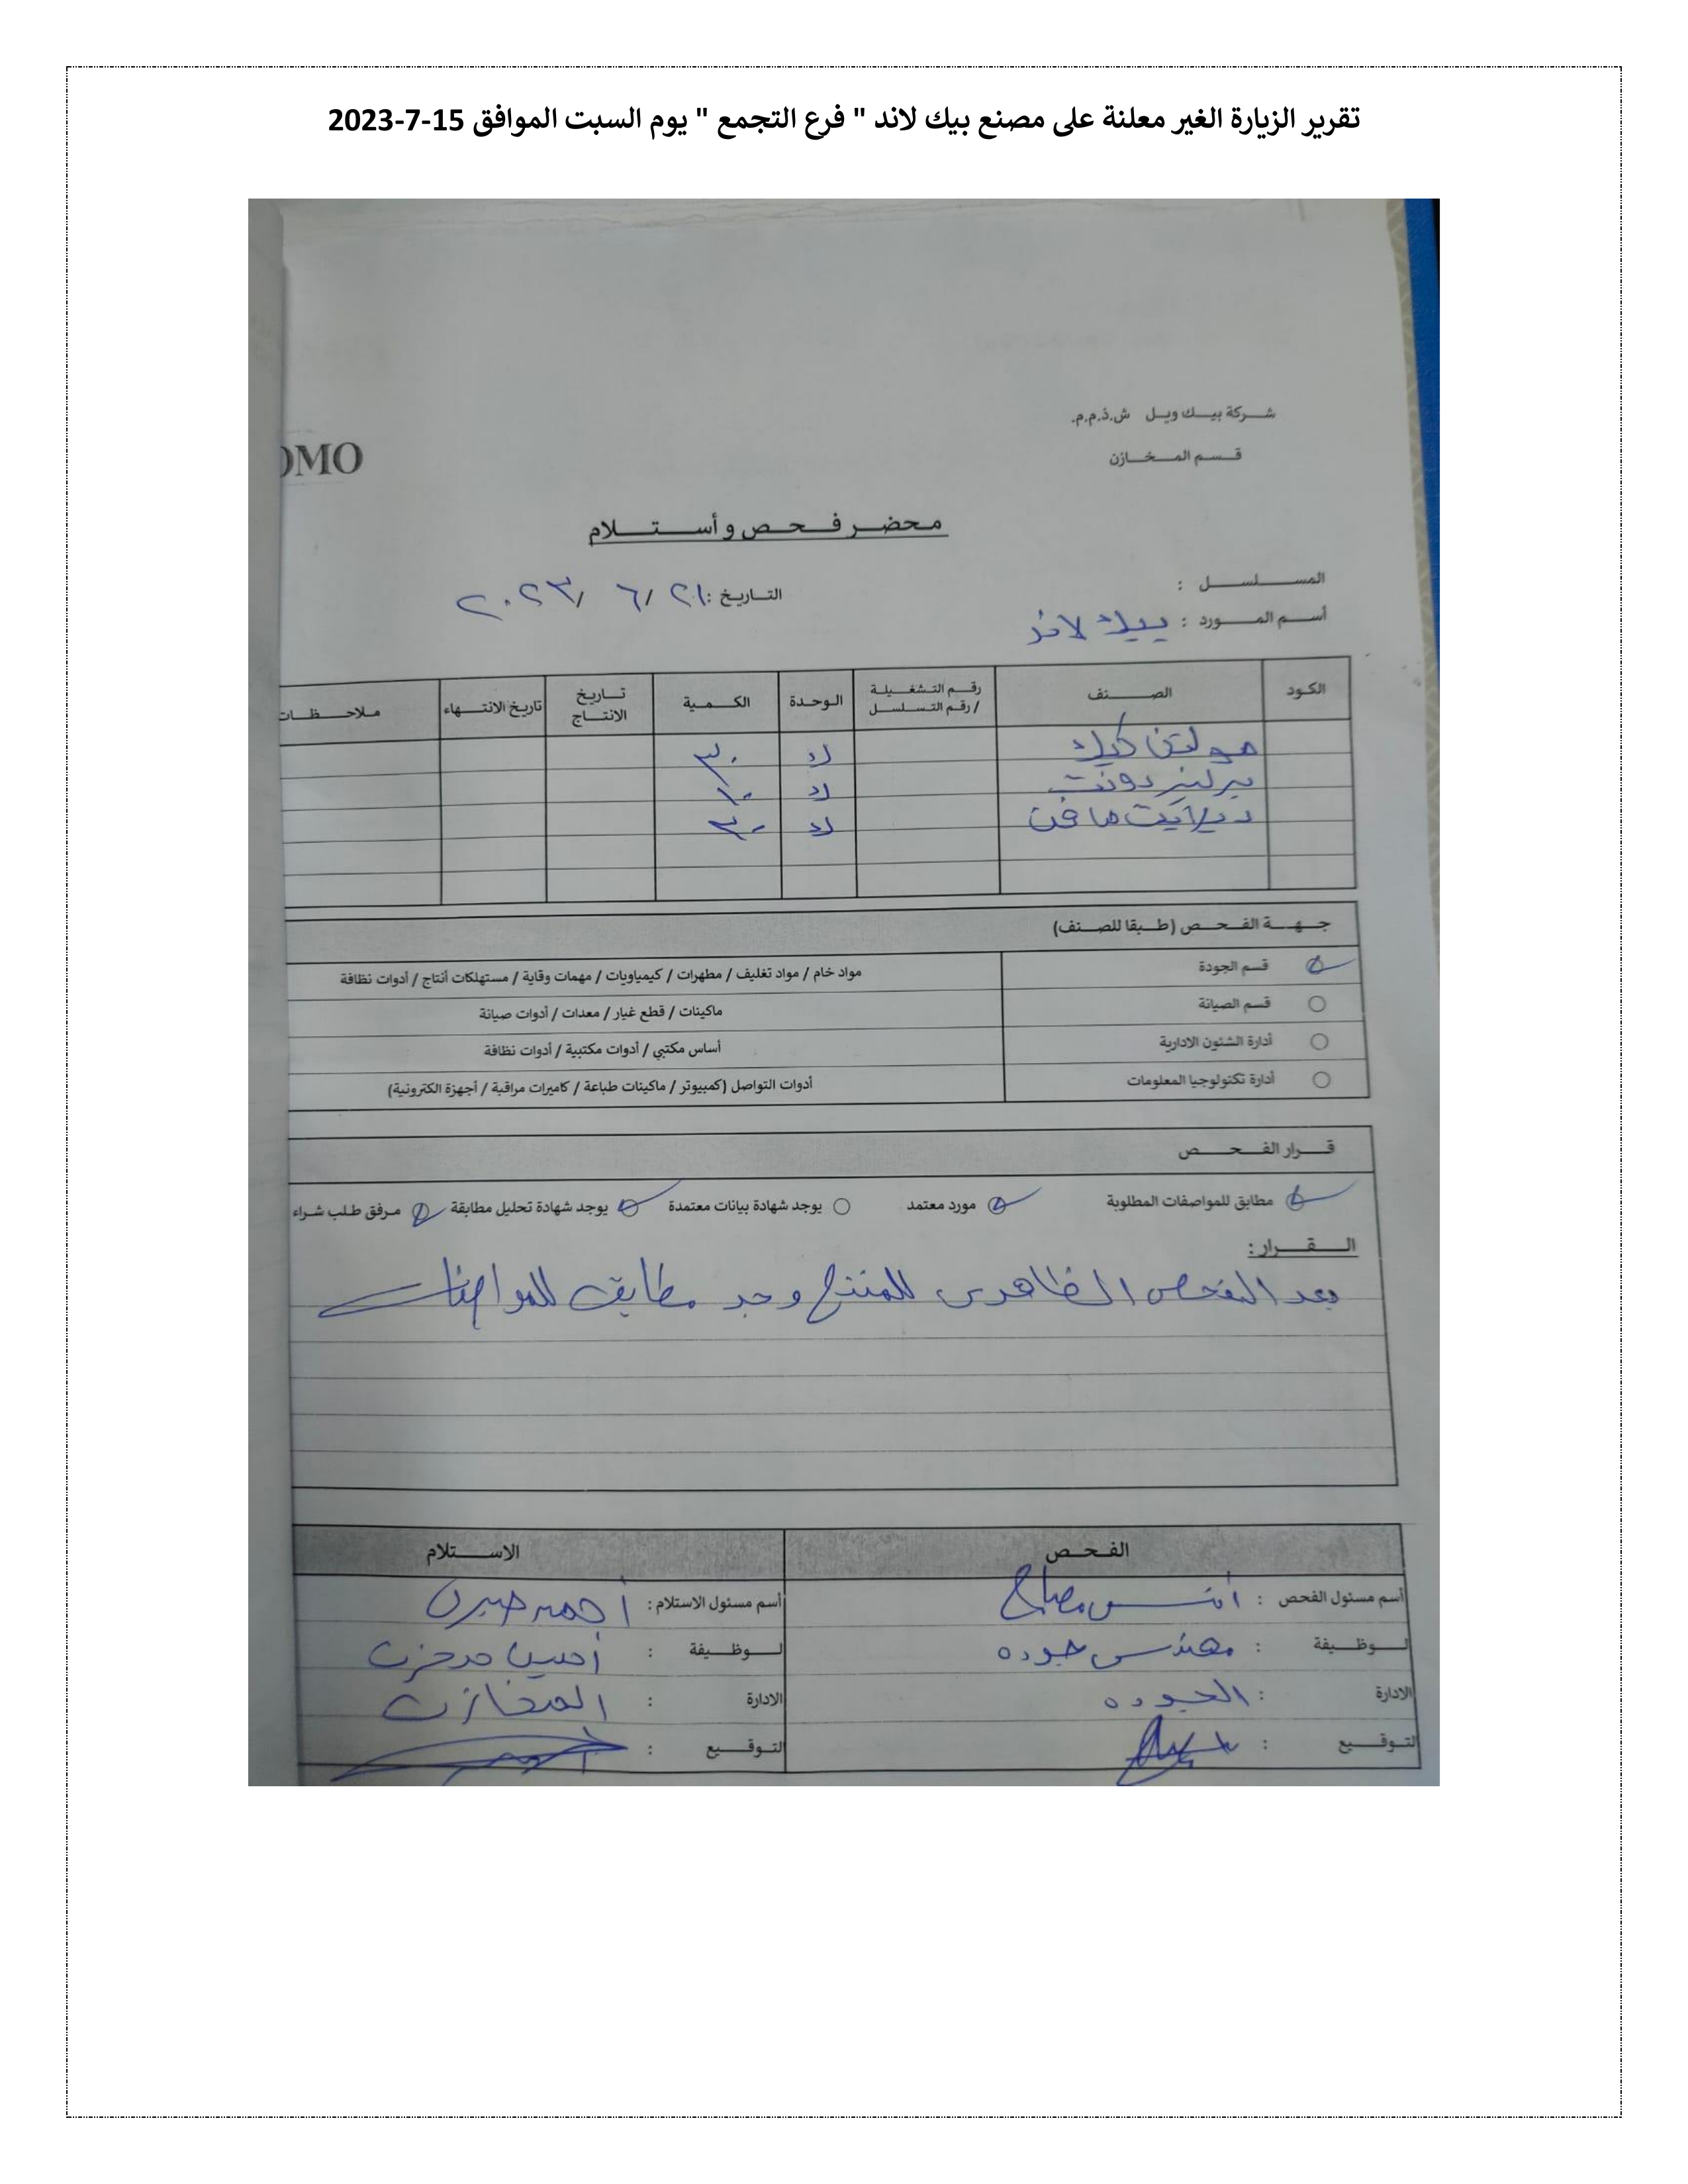 تقرير الزيارة الغير معلنة على مصنع بيك لاند " فرع التجمع " يوم السبت الموافق 15-7-2023
شركة بيك ويل ش.ذ.م.م.
قسم المخازن
OMO
محضر فحص وأستلام
المسلسل :
التاريخ : ٢١/ ٦/ ٢٠٢٣
أسم المورد : بيك لاند
الكود الصنف رقم التشغيلة / رقم التسلسل الوحدة الكمية تاريخ الانتاج تاريخ الانتهاء ملاحظات
مولتن كيك ك ٣٠
برلينر دونت ك ١٠
ك ٣٠
جهة الفحص (طبقا للصنف)
قسم الجودة مواد خام / مواد تغليف / مطهرات / كيمياويات / مهمات وقاية / مستهلكات أنتاج / أدوات نظافة
قسم الصيانة ماكينات / قطع غيار / معدات / أدوات صيانة
أدارة الشئون الادارية أساس مكتبي / أدوات مكتبية / أدوات نظافة
أدارة تكنولوجيا المعلومات أدوات التواصل (كمبيوتر / ماكينات طباعة / كاميرات مراقبة / أجهزة الكترونية)
قرار الفحص
مطابق للمواصفات المطلوبة مورد معتمد يوجد شهادة بيانات معتمدة يوجد شهادة تحليل مطابقة مرفق طلب شراء
القرار :
بعد الفحص الظاهرى للمنتج وجد مطابق للمواصفات
الفحص الاستلام
أسم مسئول الفحص : أنس مصباح أسم مسئول الاستلام : أحمد صبرى
الوظيفة : مهندس جوده الوظيفة : أمين مخزن
الادارة : الجوده الادارة : المخازن
التوقيع : التوقيع :